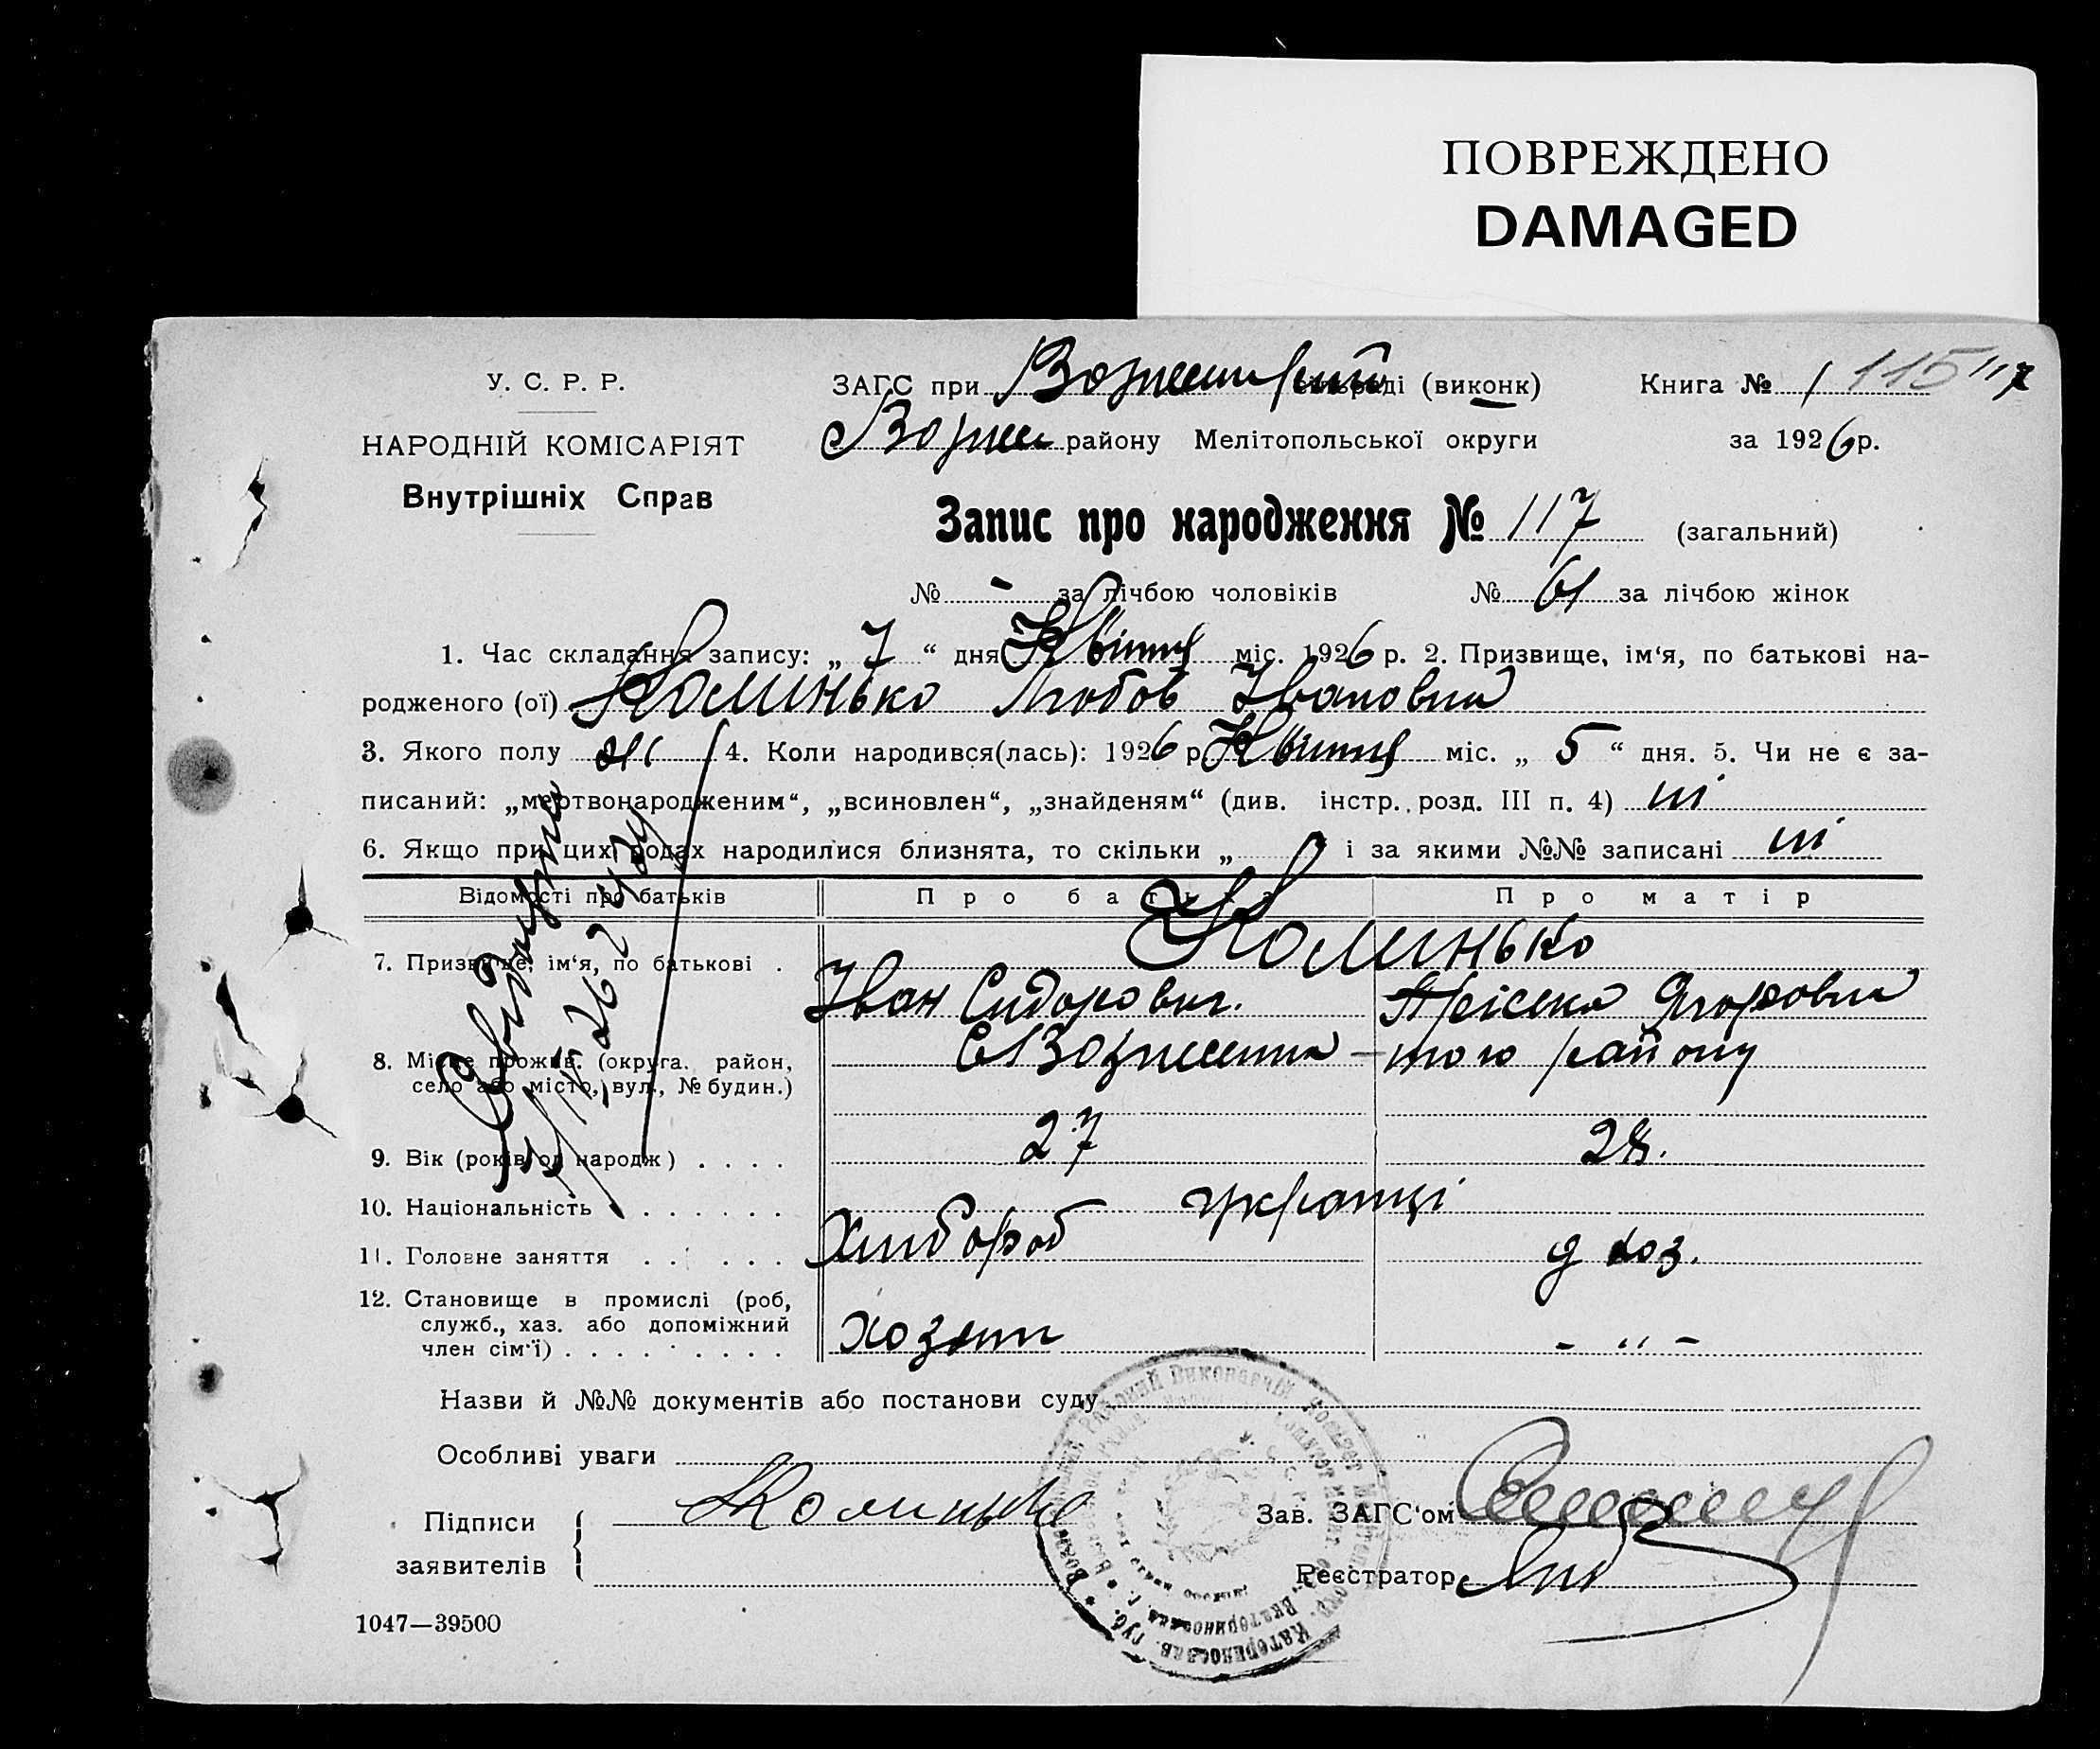 ПОВРЕЖДЕНО
DAMAGED
У. С. Р. Р.
ЗАГС при сільраді (виконк)
Книга № 1 115 117
НАРОДНІЙ КОМІСАРІЯТ
району Мелітопольської округи
за 1926 р.
Внутрішніх Справ
Запис про народження № 117 (загальний)
№ - за лічбою чоловіків № 61 за лічбою жінок
1. Час складання запису: „ 7 “ дня Квітня міс. 1926 р. 2. Призвище, ім‘я, по батькові на-
родженого (ої) Коминько Любов Івановна
3. Якого полу ж 4. Коли народився(лась): 1926 р. Квітня міс. „ 5 “ дня. 5. Чи не є за-
писаний: „мертвонародженим“, „всиновлен“, „знайденям“ (див. інстр. розд. III п. 4) ні
6. Якщо при цих родах народилися близнята, то скільки „ “ і за якими №№ записані ні
Відомості про батьків Про батька Про матір
Коминько
7. Призвище, ім‘я, по батькові . Іван Сидорович. Ягоровна
8. Місце прожив. (округа. район,
село або місто, вул., № будин.)
району
9. Вік (років од народж) . . . . 27 28.
10. Національність . . . . . . українці
11. Головне заняття . . . . . . Хлібороб д хоз.
12. Становище в промислі (роб,
служб., хаз. або допоміжний
член сім‘ї) . . . . . . . . . хозяин - „ -
Назви й №№ документів або постанови суду
Особливі уваги
Підписи
заявителів
Коминько
Зав. ЗАГС‘ом
Реєстратор
1047—39500